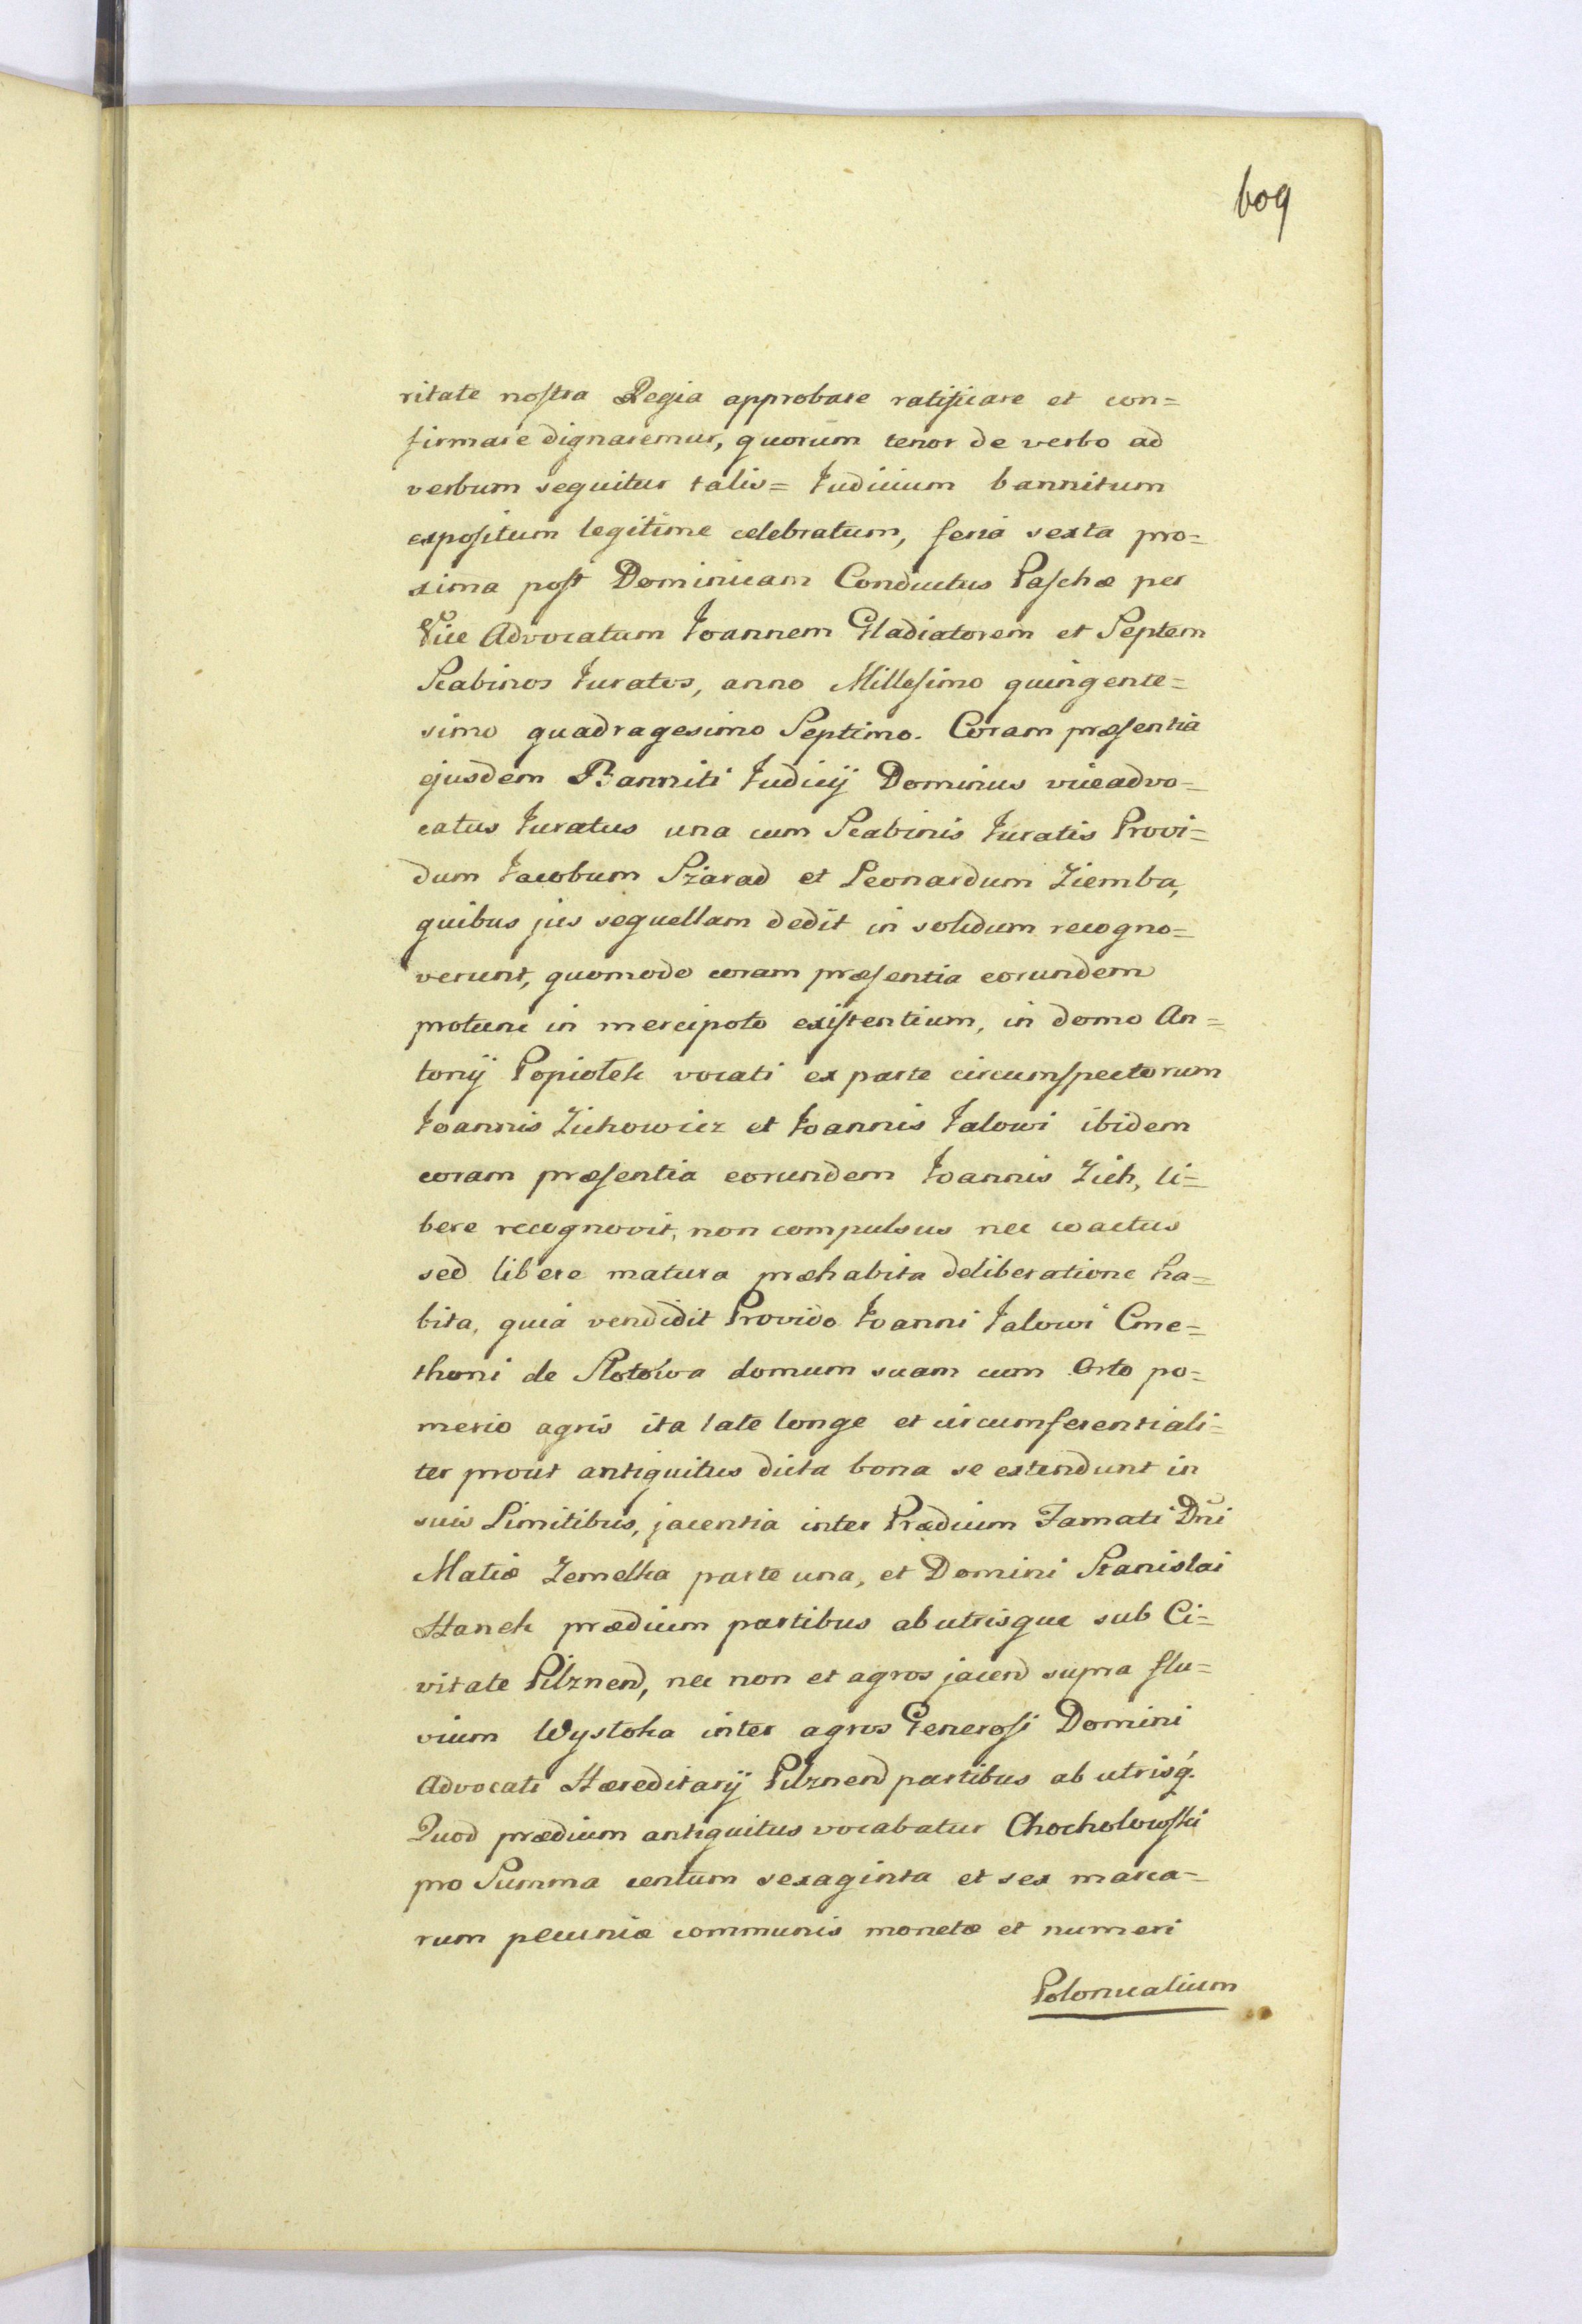 609
ritate nostra Regia approbare ratificare et con=
firmare dignaremur, quorum tenor de verbo ad
verbum sequitur talis= Iudicium bannitum
expositum legitime celebratum, feria sexta pro=
xima post Dominicam Conductus Paschæ per
Vice Advocatum Ioannem Gladiatorem et Septem
Scabinos Iuratos, anno Millesimo quingente=
simo quadragesimo Septimo. Coram præsentia
ejusdem Banniti Iudicij Dominus viceadvo=
catus Iuratus una cum Scabinis Iuratis Provi=
dum Iacobum Szarad et Leonardum Ziemba,
quibus jus sequellam dedit in solidum recogno=
verunt, quomodo coram præsentia eorundem
protunc in mercipoto existentium, in domo An=
tonij Popiołek vocati ex parte circumspectorum
Ioannis Zichowicz et Ioannis Ialowi ibidem
coram præsentia eorundem Ioannis Zich, li=
bere recognovit, non compulsus nec coactus
sed libere matura præhabita deliberatione ha=
bita, quia vendidit Provido Ioanni Ialowi Cme=
thoni de Słotowa domum suam cum Orto po=
merio agris ita late longe et circumferentiali=
ter prout antiquitus dicta bona se extendunt in
suis Limitibus, jacentia inter Prædium Famati Dni
Matiæ Zemelka parte una, et Domini Stanislai
Hanek prædium partibus ab utrisque sub Ci=
vitate Pilznen̄, nec non et agros jacen̄ supra flu=
vium Wystoka inter agros Generosi Domini
Advocati Hæreditarij Pilznen̄ partibus ab utrisq́.
Quod prædium antiquitus vocabatur Chocholowski
pro Summa centum sexaginta et sex marca=
rum pecuniæ communis monetæ et numeri
Polonicalium